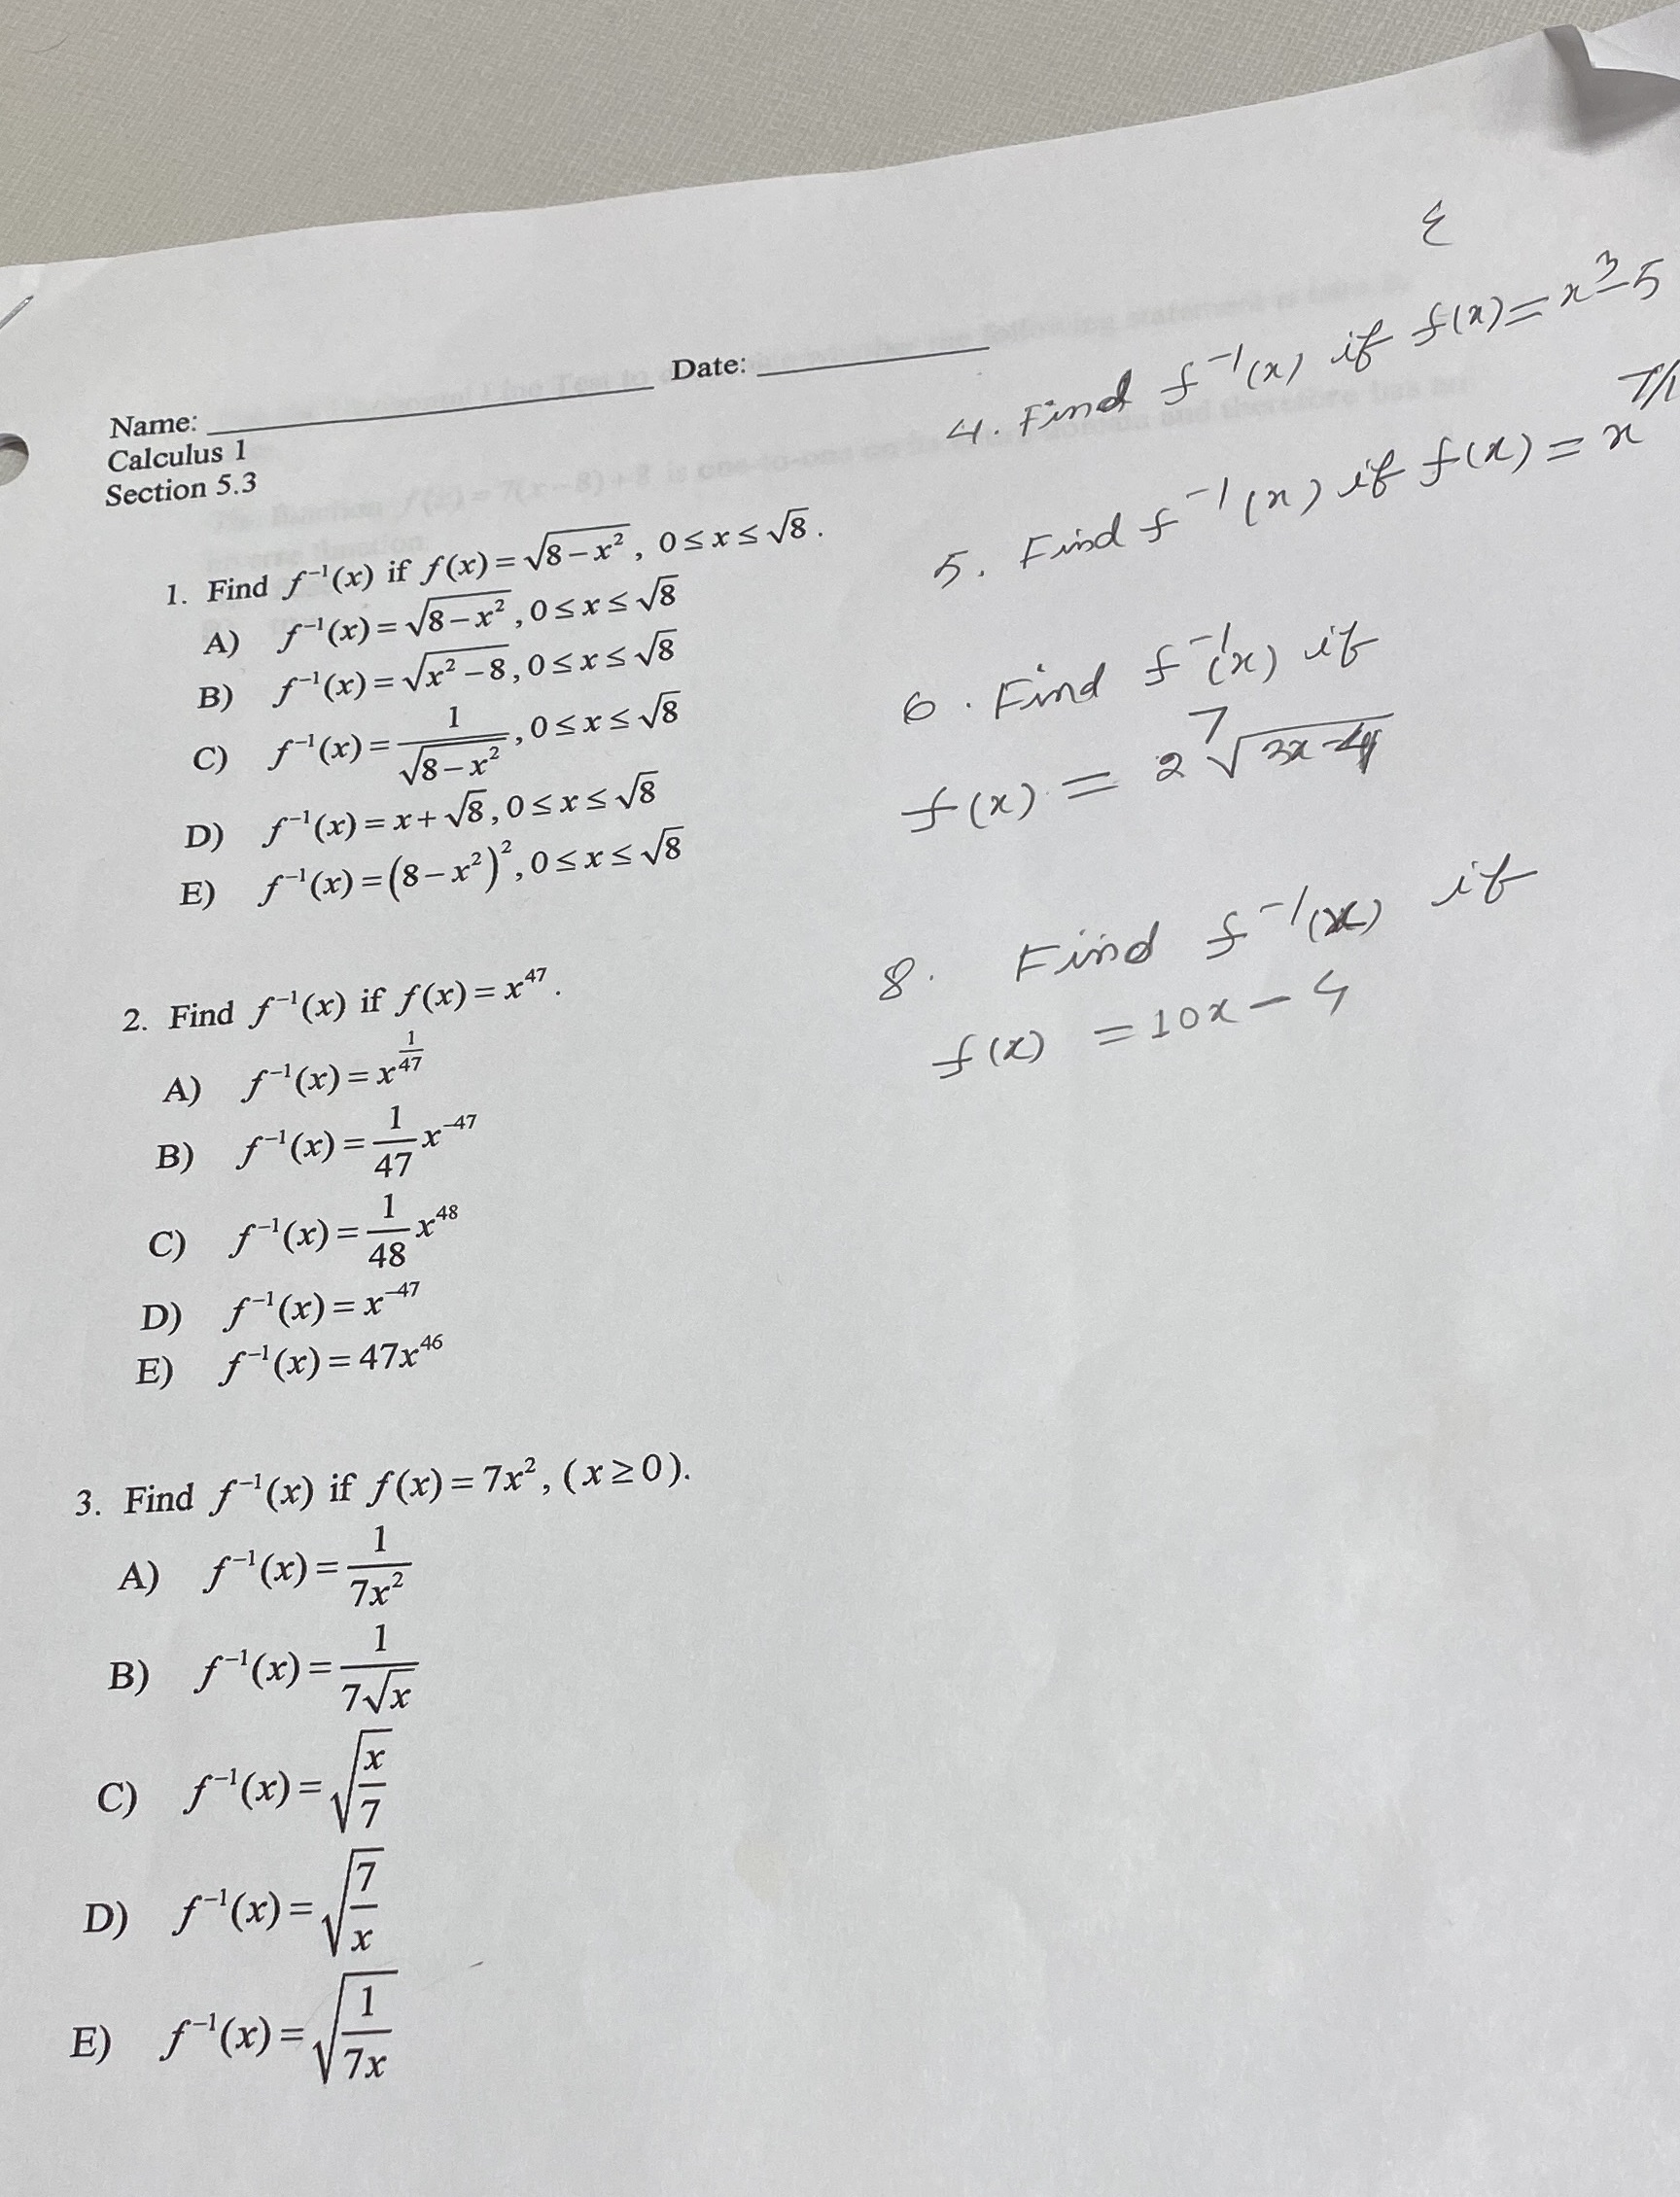 Name: ____________ Date: ____________
Calculus 1
Section 5.3
1. Find f⁻¹(x) if f(x) = √(8 − x²), 0 ≤ x ≤ √8.
A) f⁻¹(x) = √(8 − x²), 0 ≤ x ≤ √8
B) f⁻¹(x) = √(x² − 8), 0 ≤ x ≤ √8
C) f⁻¹(x) = 1/√(8 − x²), 0 ≤ x ≤ √8
D) f⁻¹(x) = x + √8, 0 ≤ x ≤ √8
E) f⁻¹(x) = (8 − x²)², 0 ≤ x ≤ √8
2. Find f⁻¹(x) if f(x) = x⁴⁷.
A) f⁻¹(x) = x^(1/47)
B) f⁻¹(x) = 1/47 x⁻⁴⁷
C) f⁻¹(x) = 1/48 x⁴⁸
D) f⁻¹(x) = x⁻⁴⁷
E) f⁻¹(x) = 47x⁴⁶
3. Find f⁻¹(x) if f(x) = 7x², (x ≥ 0).
A) f⁻¹(x) = 1/(7x²)
B) f⁻¹(x) = 1/(7√x)
C) f⁻¹(x) = √(x/7)
D) f⁻¹(x) = √(7/x)
E) f⁻¹(x) = √(1/(7x))
4. Find f⁻¹(x) if f(x) = x³ − 5
5. Find f⁻¹(x) if f(x) = x
6. Find f⁻¹(x) if
f(x) = 2 ⁷√(3x − 4)
8. Find f⁻¹(x) if
f(x) = 10x − 4